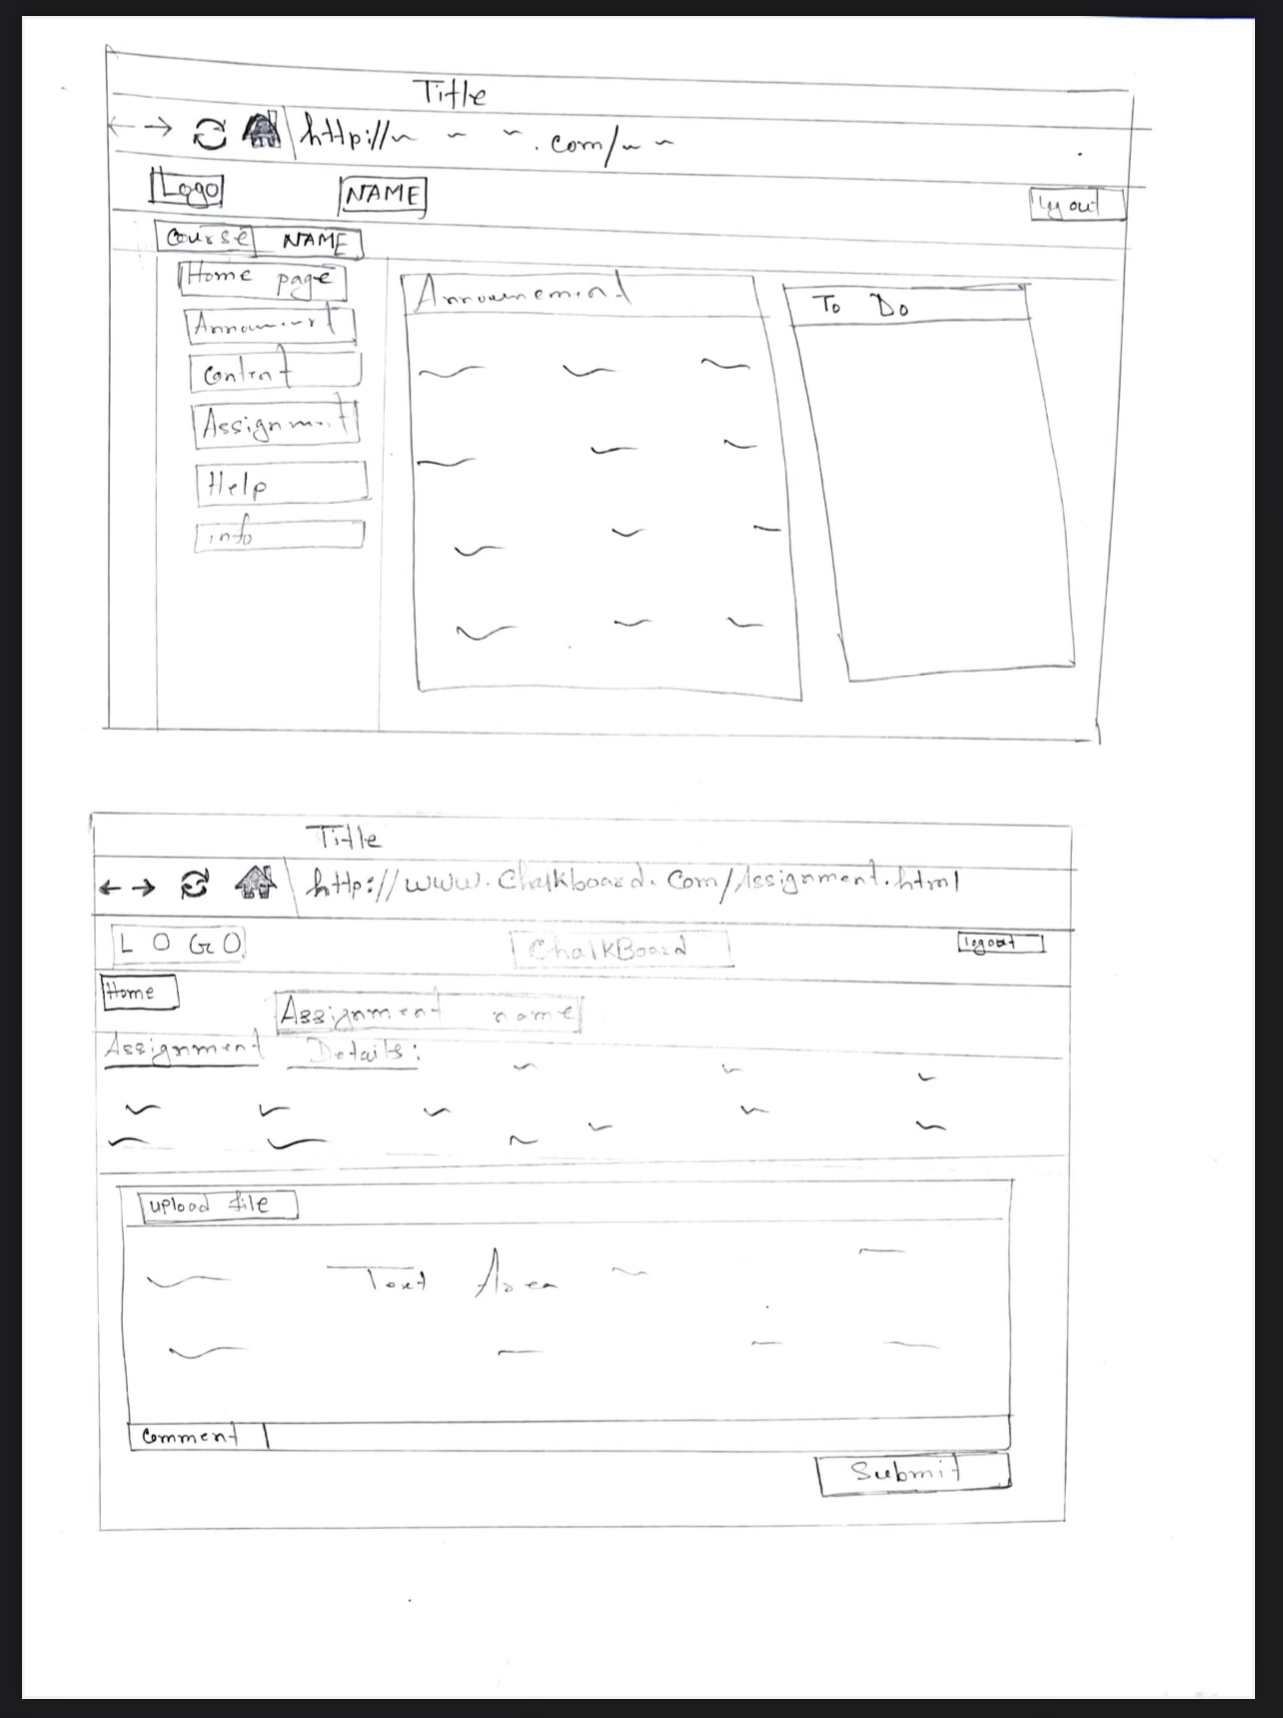 Title
http:// .com/
Logo NAME log out
Course NAME
Home page
Announcement To Do
Content
Assignment
Help
info
Title
http://www.Chalkboard.Com/Assignment.html
LOGO ChalkBoard logout
Home
Assignment name
Assignment Details:
upload file
Text Area
Comment
Submit